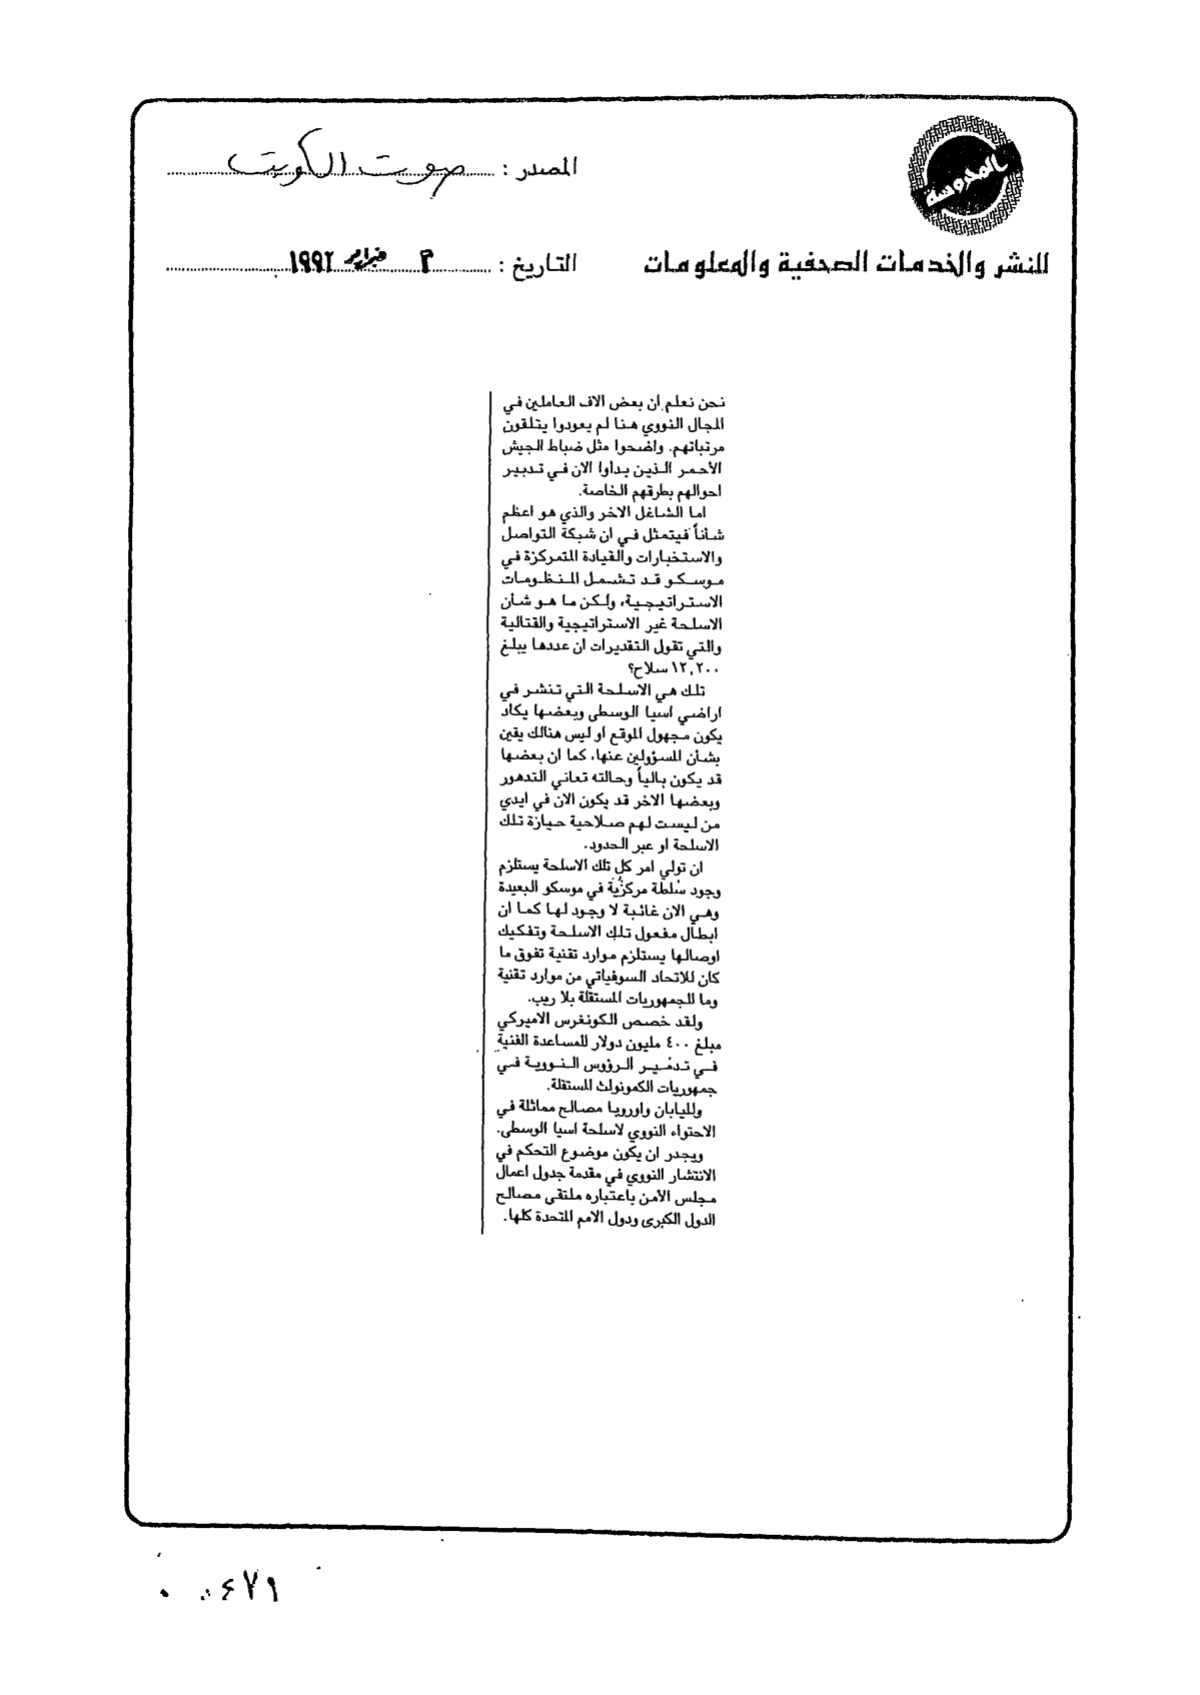 المحروسة
المصدر : صوت الكويت
للنشر والخدمات الصحفية والمعلومات
التاريخ : ٣ فبراير ١٩٩٢
نحن نعلم ان بعض الاف العاملين في
المجال النووي هنا لم يعودوا يتلقون
مرتباتهم. واضحوا مثل ضباط الجيش
الأحمر الذين بدأوا الان في تدبير
احوالهم بطرقهم الخاصة.
اما الشاغل الاخر والذي هو اعظم
شأناً فيتمثل في ان شبكة التواصل
والاستخبارات والقيادة المتمركزة في
موسكو قد تشمل المنظومات
الاستراتيجية، ولكن ما هو شأن
الاسلحة غير الاستراتيجية والقتالية
والتي تقول التقديرات ان عددها يبلغ
١٢,٢٠٠ سلاح؟
تلك هي الاسلحة التي تنشر في
اراضي اسيا الوسطى وبعضها يكاد
يكون مجهول الموقع او ليس هنالك يقين
بشأن المسؤولين عنها، كما ان بعضها
قد يكون بالياً وحالته تعاني التدهور
وبعضها الاخر قد يكون الان في ايدي
من ليست لهم صلاحية حيازة تلك
الاسلحة او عبر الحدود.
ان تولي امر كل تلك الاسلحة يستلزم
وجود سلطة مركزية في موسكو البعيدة
وهي الان غائبة لا وجود لها كما ان
ابطال مفعول تلك الاسلحة وتفكيك
اوصالها يستلزم موارد تقنية تفوق ما
كان للاتحاد السوفياتي من موارد تقنية
وما للجمهوريات المستقلة بلا ريب.
ولقد خصص الكونغرس الاميركي
مبلغ ٤٠٠ مليون دولار للمساعدة الفنية
في تدمير الرؤوس النووية في
جمهوريات الكمونولث المستقلة.
ولليابان واوروبا مصالح مماثلة في
الاحتواء النووي لاسلحة اسيا الوسطى.
ويجدر ان يكون موضوع التحكم في
الانتشار النووي في مقدمة جدول اعمال
مجلس الأمن باعتباره ملتقى مصالح
الدول الكبرى ودول الامم المتحدة كلها.
٠٠٤٧١